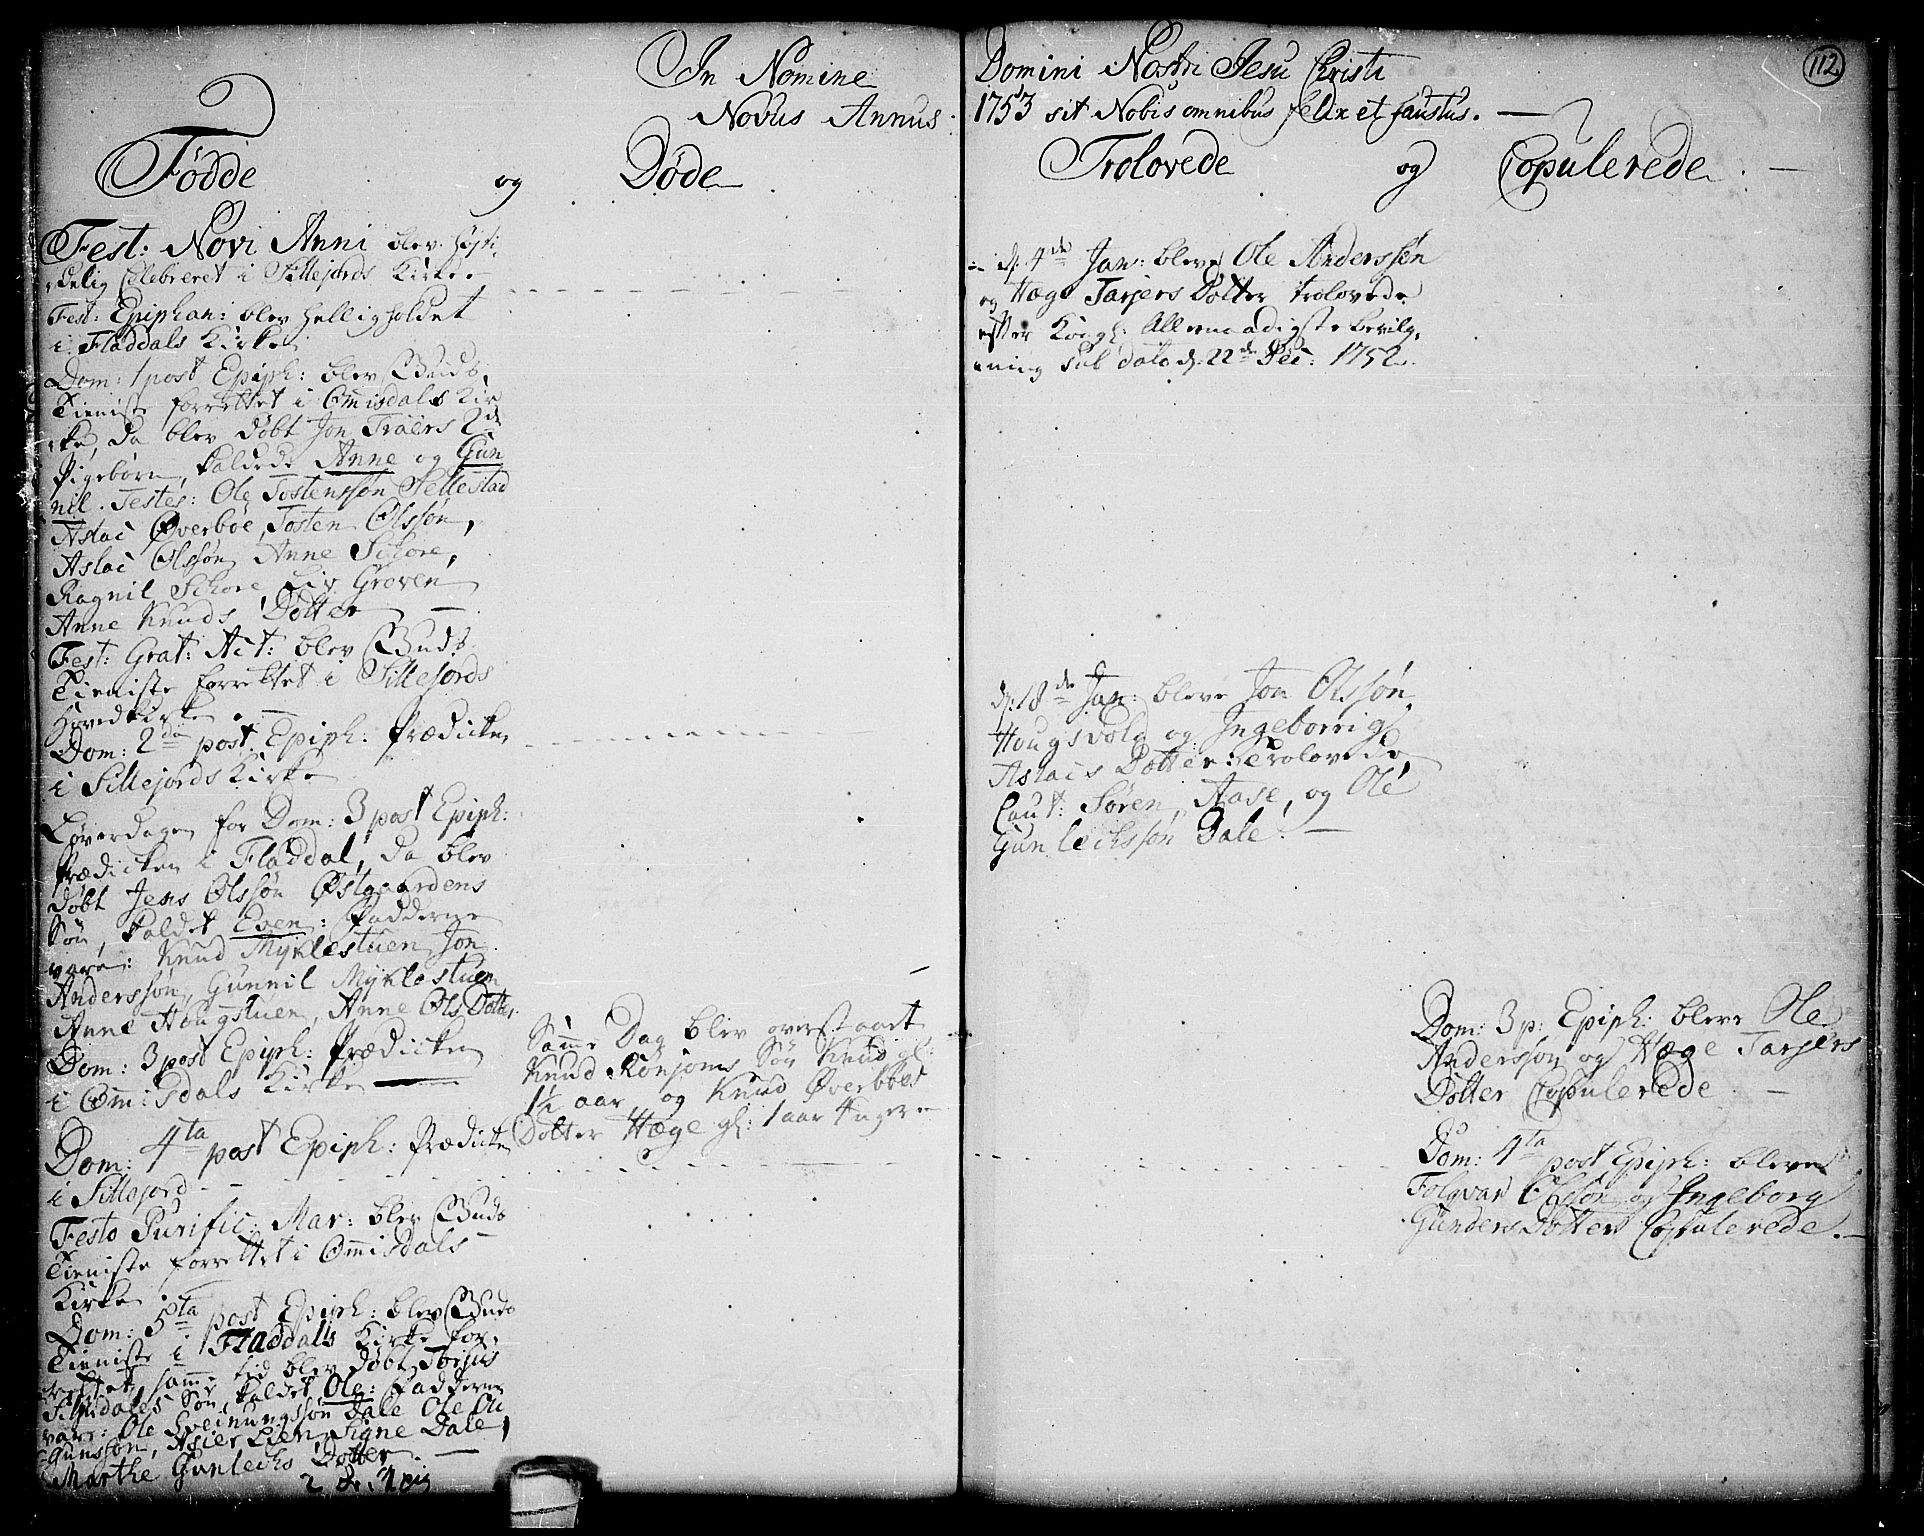 In Nomine Domini Nostri Jesu Christi
Novus Annus 1753 sit Nobis omnibus felix et faustus.
112
Fødde og Døde
Trolovede og Copulerede
Fest: Novi Anni blev høyti-
delig Celebreret i Sillejords Kirke
Fest: Epiphan: blev helligholdet
i Fladdals Kirke
Dom: 1 post Epiph: blev Guds
Tieniste forrettet i Omisdals Kir
ke, da blev døbt Jon Træers 2de
Pigebørn, kaldede Anne og Gun
nil. Testes: Ole Tostenssøn Sellestad
Aslac Øverbøe, Tosten Olssøn,
Aslac Olssøn, Anne Schore,
Ragnil Schore, Liv Groven
Anne Knuds Dotter
Fest: Grat: Act: blev Guds
Tieniste forrettet i Sillejords
Hovedkirke
Dom: 2da post Epiph: Prædicken
i Sillejords Kirke
Løverdagen for Dom: 3 post Epiph:
Prædicken i Fladdal, da blev
døbt Jens Olssøn Østgaardens
Søn, kaldet Even: Fadderne
vare: Knud Myklestuen, Jon
Anderssøn, Gunnil Myklestuen
Anne Hougstuen, Anne Ols Dotter.
Dom: 3 post Epiph: Prædicken
i Omisdals Kirke
Dom: 4ta post Epiph: Prædicken
i Sillejord
Festo Purific: Mar: blev Guds
Tieniste forrettet i Omisdals
Kirke
Dom: 5ta post Epiph: blev Guds
Tieniste i Fladdals Kirke for-
rettet, samme tid blev døbt Torjus
Søn, kaldet Ole: Fadderne
vare: Ole Sveinungssøn Dale Ole Ol
Lien, Signe Dale,
Marthe Gunlechs Dotter
Samme Dag blev overstaaet
Knud Rønjoms Søn Knud gl:
1½ aar, og Knud Øverbøes
Dotter Hæge gl: 1 aar
d: 4de Jan: bleve Ole Anderssøn
og Hæge Tarjers Dotter trolovede
efter Kongl: Allernaadigste bevilg-
ning sub dato d. 22de Dec: 1752.
d: 18de Jan: bleve Jon Olssøn
Hougsvold og Ingeborrig
Aslacs Dotter: Trolovede
Caut: Søren Aase, og Ole
Gunlechssøn Dale.
Dom: 3 p: Epiph: bleve Ole
Anderssøn og Hæge Tarjers
Dotter Copulerede
Dom: 4ta post Epiph: bleve
Folqvar Olssøn og Ingeborg
Gunders Dotter Copulerede.